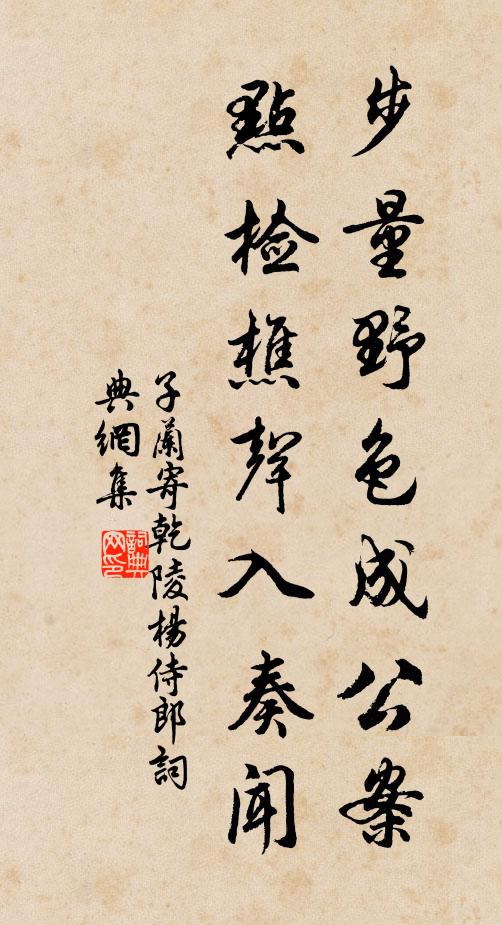 步量野色成公案
點檢樵聲入奏聞
子蘭寄乾陵楊侍郎詞
典網集
詞典
网印